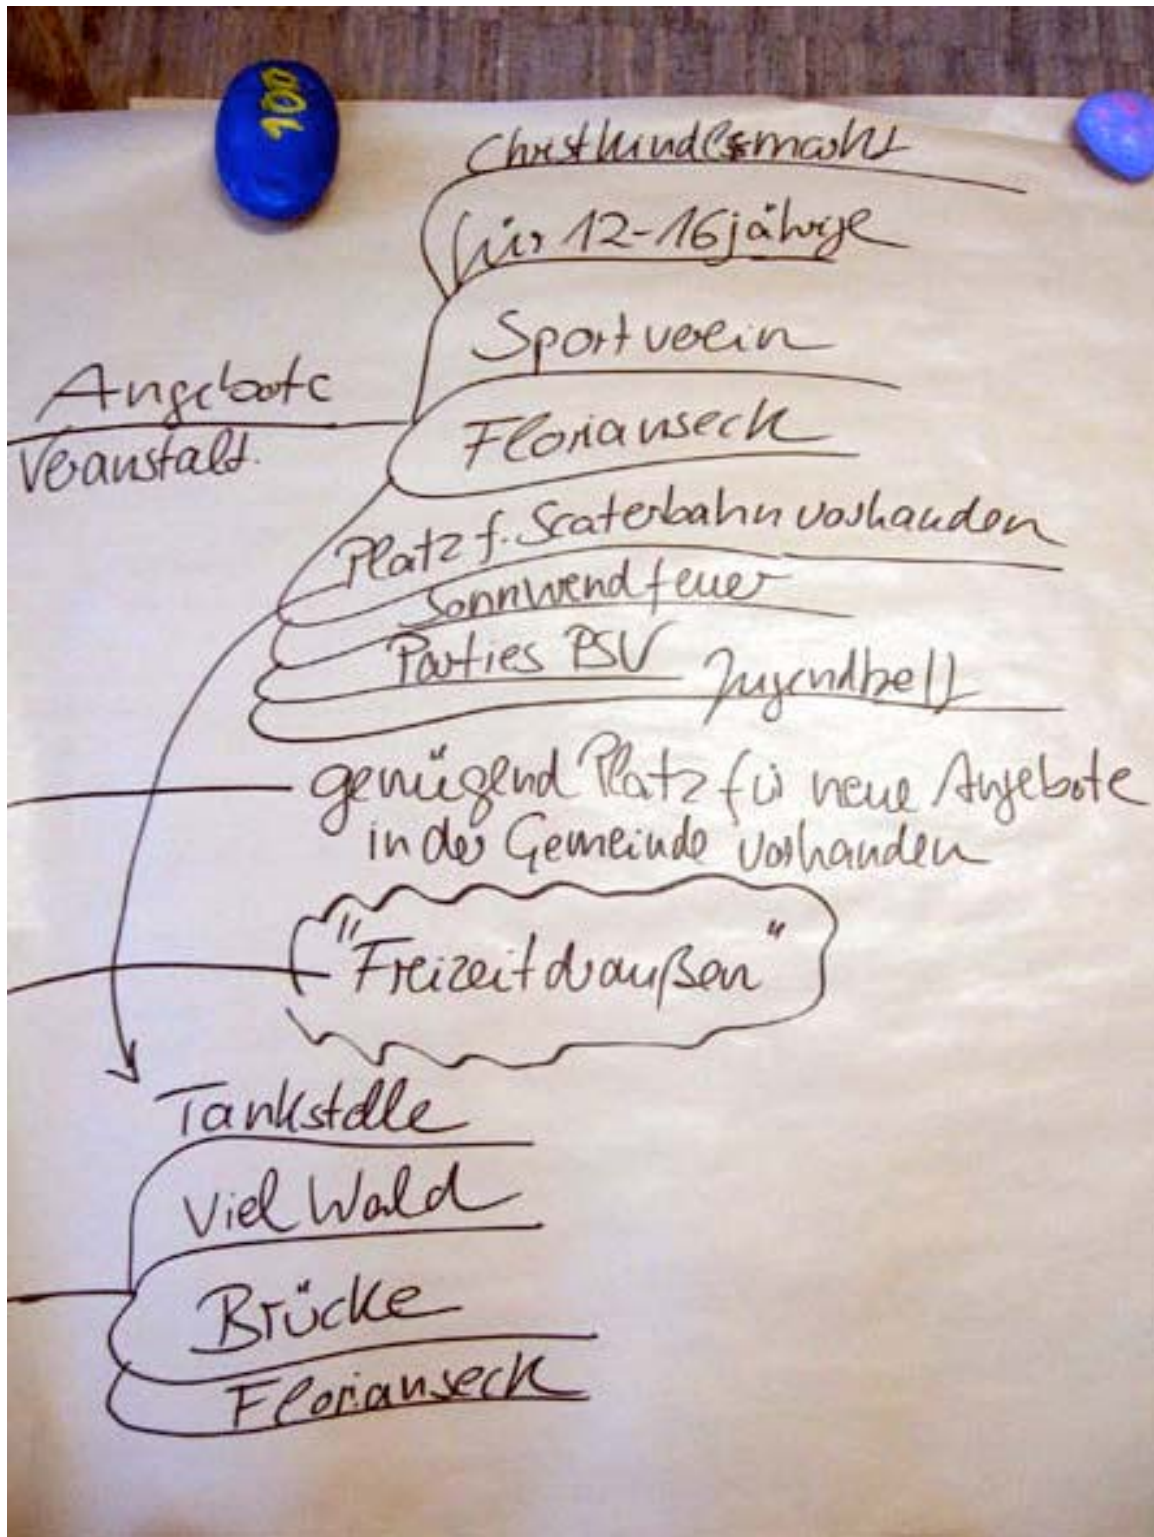 100
Christkindlesmarkt
für 12-16jährige
Sportverein
Angebote
Florianseck
Veranstalt.
Platz f. Scaterbahn vorhanden
Sonnwendfeuer
Parties PSV Jugendbeitt
genügend Platz für neue Angebote
in der Gemeinde vorhanden
"Freizeit draußen"
Tankstelle
Viel Wald
Brücke
Florianseck